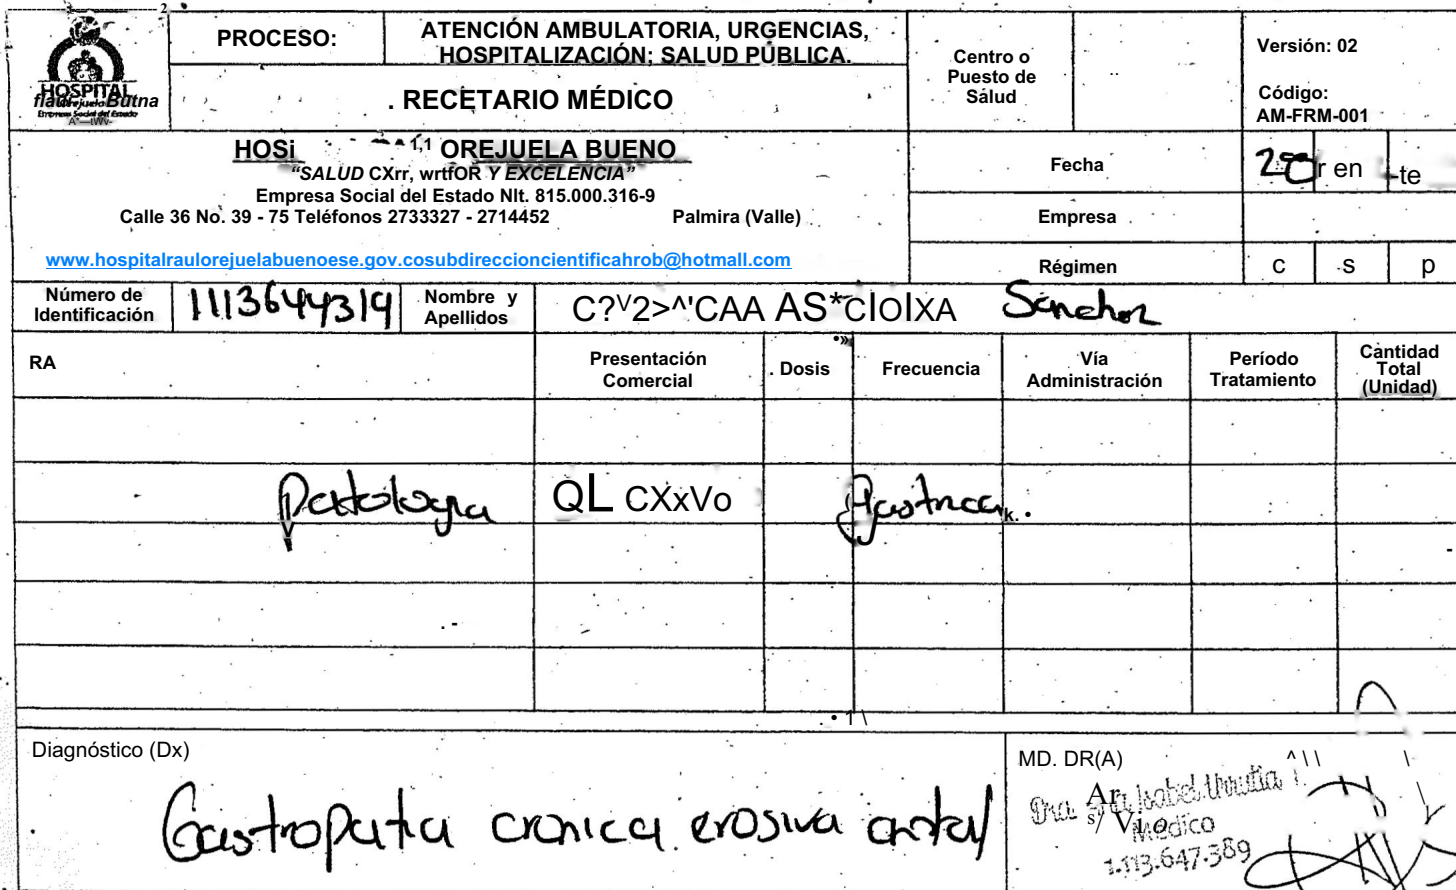 PROCESO:
ATENCIÓN AMBULATORIA, URGENCIAS,
HOSPITALIZACIÓN; SALUD PÚBLICA.
. RECETARIO MÉDICO
Centro o
Puesto de
Sálud
Versión: 02
Código:
AM-FRM-001
HOSPITAL
Empresa Social del Estado
HOSi OREJUELA BUENO
"SALUD CXrr, wrtfOR Y EXCELENCIA"
Empresa Social del Estado Nlt. 815.000.316-9
Calle 36 No. 39 - 75 Teléfonos 2733327 - 2714452 Palmira (Valle)
www.hospitalraulorejuelabuenoese.gov.cosubdireccioncientificahrob@hotmall.com
Fecha r en -te
Empresa
Régimen c s p
Número de
Identificación
1113644319
Nombre y
Apellidos
C?V2>^'CAA AS*cIOIXA Sanchez
RA
Presentación
Comercial
. Dosis
Frecuencia
Vía
Administración
Período
Tratamiento
Cantidad
Total
(Unidad)
Patologia QL CXxVo gastrica k.
Diagnóstico (Dx)
Gastropatia cronica erosiva antral
MD. DR(A)
Dra. Isabel Urrutia
Médico
1.113.647.389